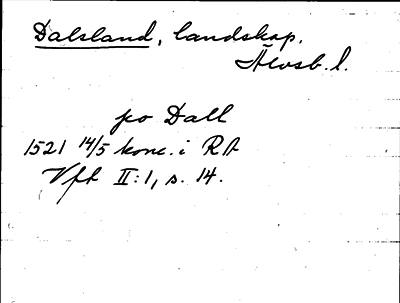 Dalsland, landskap.
Älvsb. l.
po Dall
1521 14/5 konc. i RA
Vfh II:1, s. 14.